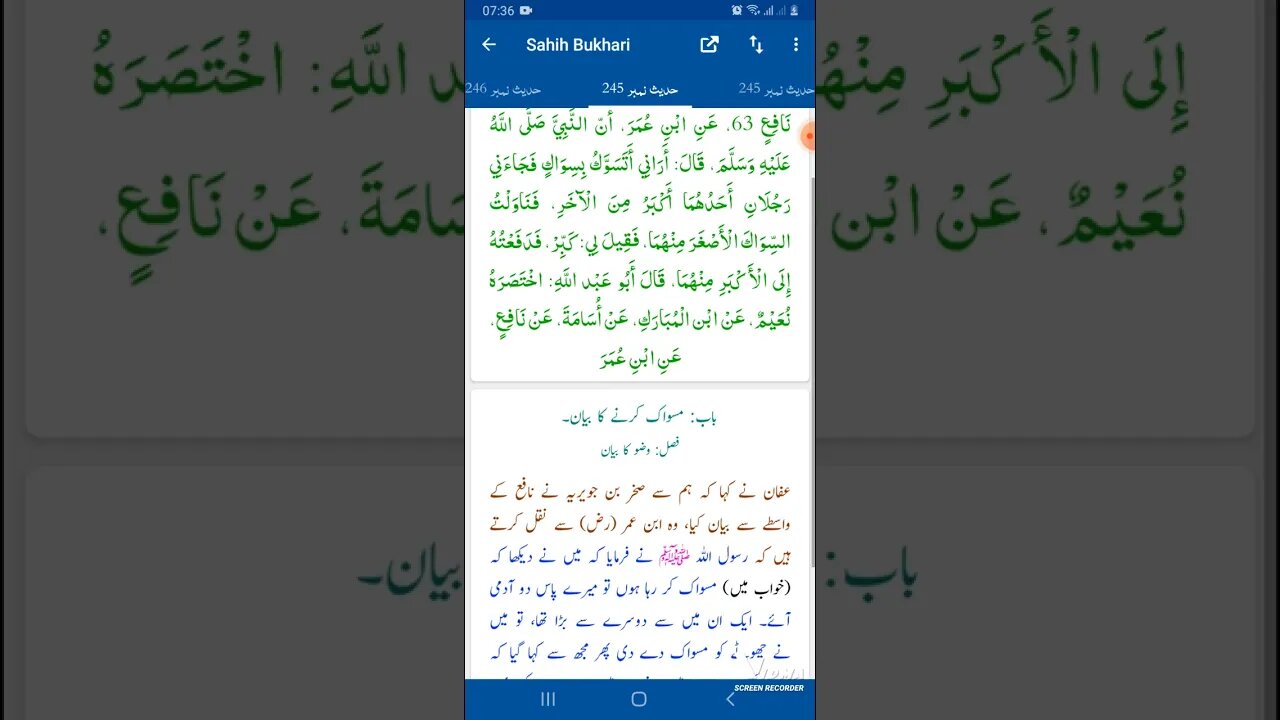 07:36
Sahih Bukhari
حدیث نمبر 245
حدیث نمبر 245
حدیث نمبر 246
نَافِعٍ 63، عَنِ ابْنِ عُمَرَ، أَنّ النَّبِيَّ صَلَّى اللَّهُ
عَلَيْهِ وَسَلَّمَ، قَالَ: أَرَانِي أَتَسَوَّكُ بِسِوَاكٍ فَجَاءَنِي
رَجُلَانِ أَحَدُهُمَا أَكْبَرُ مِنَ الْآخَرِ، فَنَاوَلْتُ
السِّوَاكَ الْأَصْغَرَ مِنْهُمَا، فَقِيلَ لِي: كَبِّرْ، فَدَفَعْتُهُ
إِلَى الْأَكْبَرِ مِنْهُمَا، قَالَ أَبُو عَبْد اللَّهِ: اخْتَصَرَهُ
نُعَيْمٌ، عَنْ ابْنِ الْمُبَارَكِ، عَنْ أُسَامَةَ، عَنْ نَافِعٍ،
عَنِ ابْنِ عُمَرَ
باب: مسواک کرنے کا بیان۔
فصل: وضو کا بیان
عفان نے کہا کہ ہم سے صخر بن جویریہ نے نافع کے
واسطے سے بیان کیا، وہ ابن عمر (رض) سے نقل کرتے
ہیں کہ رسول اللہ ﷺ نے فرمایا کہ میں نے دیکھا کہ
(خواب میں) مسواک کر رہا ہوں تو میرے پاس دو آدمی
آئے۔ ایک ان میں سے دوسرے سے بڑا تھا، تو میں
نے چھوٹے کو مسواک دے دی پھر مجھ سے کہا گیا کہ
SCREEN RECORDER
إِلَى الْأَكْبَرِ مِنْهُ
عَبْد اللَّهِ: اخْتَصَرَهُ
نُعَيْمٌ، عَنْ ابْن
سَامَةَ، عَنْ نَافِعٍ،
باب:
بیان۔